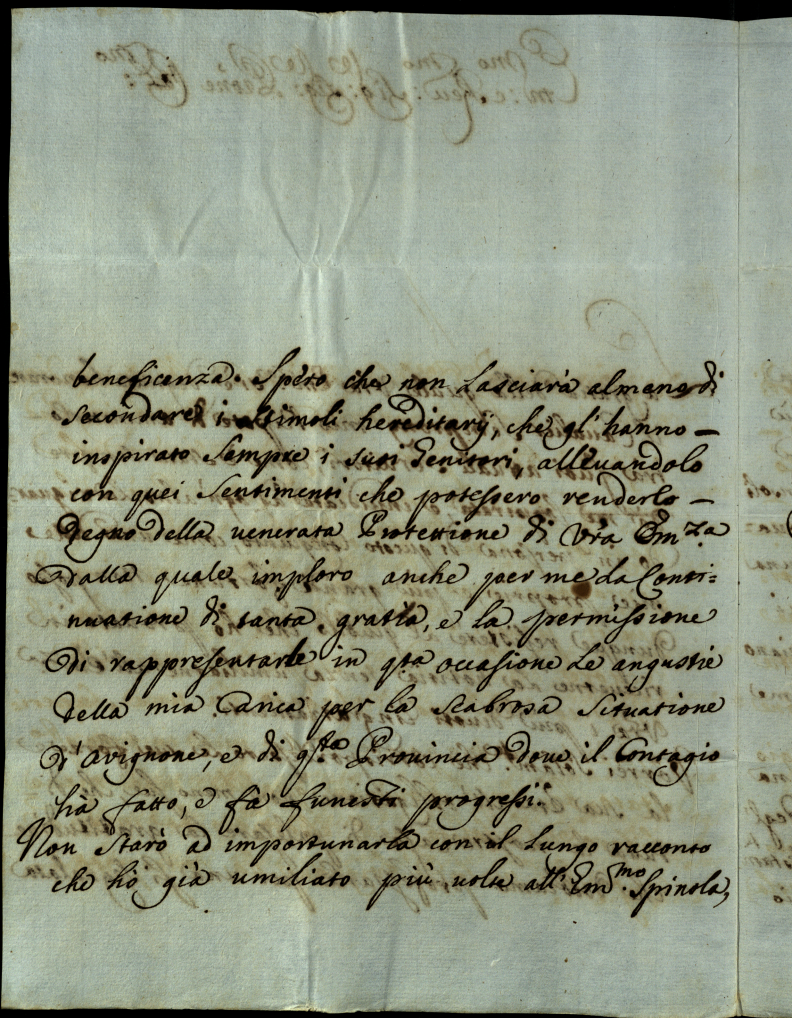 beneficenza. Spero che non lasciarà almeno di
secondare i stimoli hereditarij, che gl'hanno –
inspirato sempre i suoi Genitori, allevandolo
con quei sentimenti che potessero renderlo –
degno della venerata Protettione di Vra Emza
dalla quale imploro anche per me la Conti=
nuatione di tanta gratia, e la permissione
di rappresentarle in qta occasione le angustie
della mia Carica per la scabrosa situatione
d'Avignone, e di qta Provincia dove il Contagio
hà fatto, e fà funesti progressi.
Non starò ad importunarla con il lungo racconto
che hò già umiliato più volte all'Emmo Spinola,